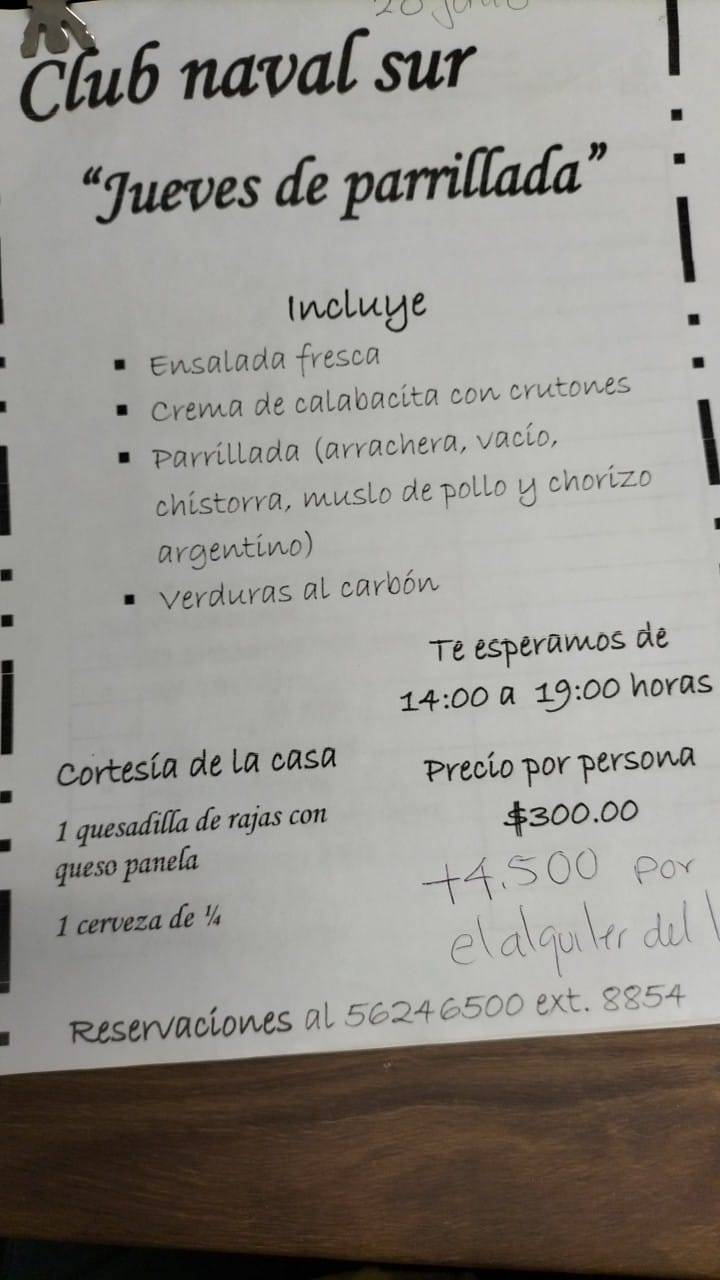 20 junio
Club naval sur
“Jueves de parrillada”
Incluye
▪ Ensalada fresca
▪ Crema de calabacita con crutones
▪ Parrillada (arrachera, vacío,
chistorra, muslo de pollo y chorizo
argentino)
▪ Verduras al carbón
Te esperamos de
14:00 a 19:00 horas
Cortesía de la casa
1 quesadilla de rajas con
queso panela
1 cerveza de ¼
Precio por persona
$300.00
+4.500 por
el alquiler del
Reservaciones al 56246500 ext. 8854